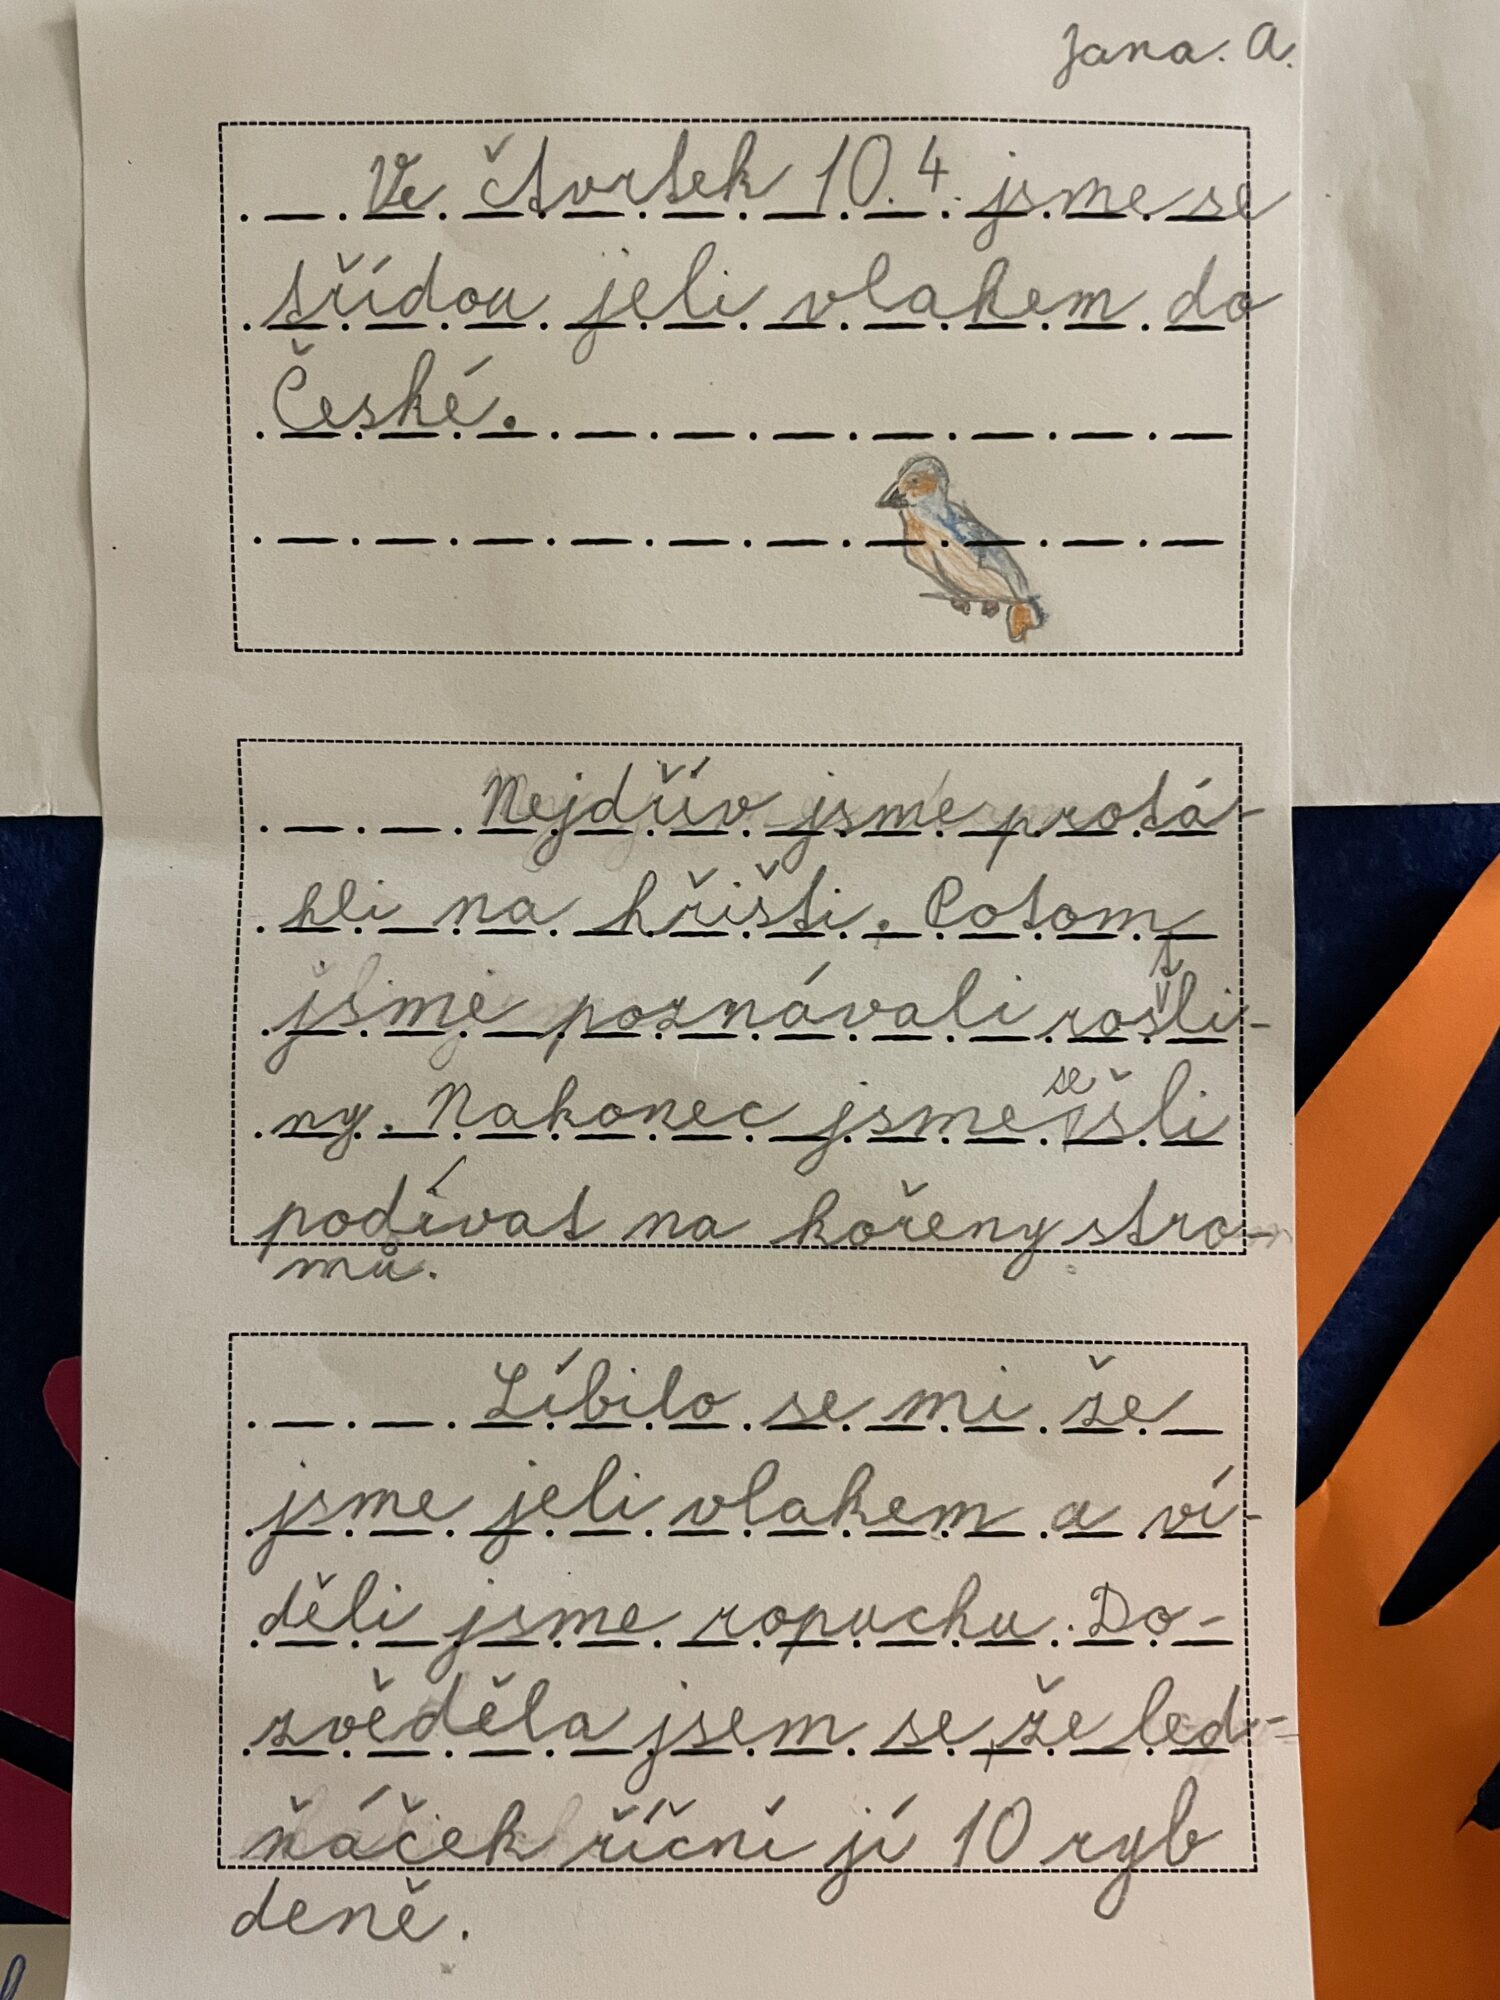 Jana. A.
Ve čtvrtek 10.4. jsme se
třídou jeli vlakem do
České.
Nejdřív jsme protá-
hli na hřišti. Potom
jsme poznávali rostli-
ny. Nakonec jsme se šli
podívat na kořeny stro-
mů.
Líbilo se mi že
jsme jeli vlakem a vi-
děli jsme ropuchu. Do-
zvěděla jsem se, že led-
ňáček říční jí 10 ryb
deně.